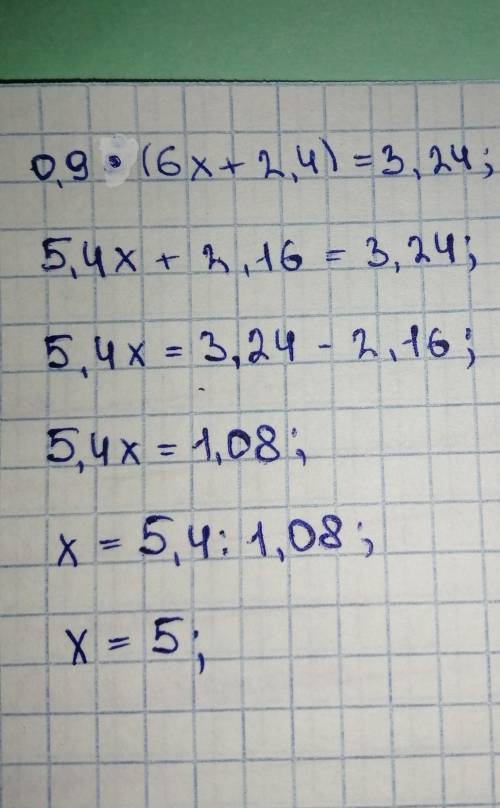 0,9 • (6x + 2,4) = 3,24;
5,4x + 2,16 = 3,24;
5,4x = 3,24 - 2,16;
5,4x = 1,08;
x = 5,4 : 1,08;
x = 5;